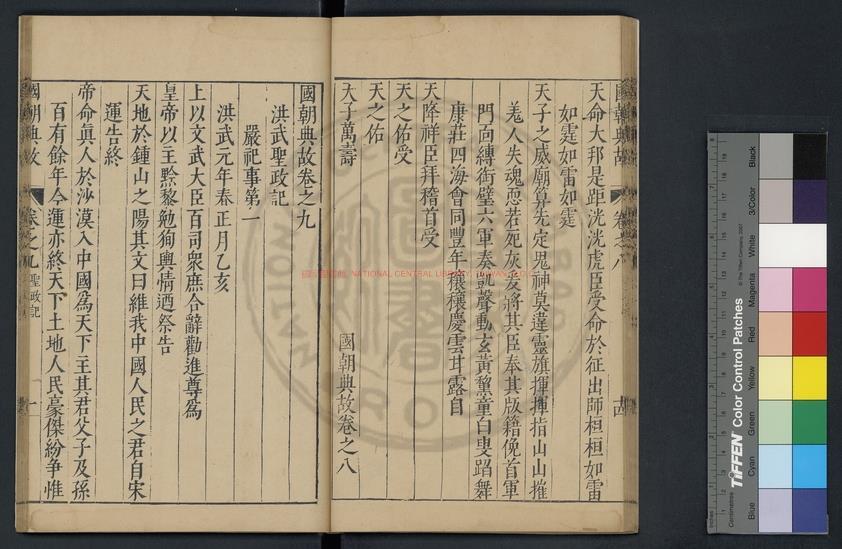 國朝典故 卷之八 十四
天命大邦是距洸洸虎臣受命於征出師桓桓如雷
如霆如雷如霆
天子之威廟算先定鬼神莫違靈旗揮揮指山山摧
羗人失魂惡若死灰爰將其臣奉其版籍俛首軍
門面縛銜璧六軍奏凱聲動玄黃黧童白叟蹈舞
康莊四海會同豐年穰穰慶雲甘露自
天降祥臣拜稽首受
天之佑受
天之佑
天子萬壽
國朝典故卷之八
國朝典故卷之九
洪武聖政記
嚴祀事第一
洪武元年春正月乙亥
上以文武大臣百司衆庶合辭勸進尊爲
皇帝以主黔黎勉徇輿情迺祭告
天地於鍾山之陽其文曰維我中國人民之君自宋
運告終
帝命眞人於沙漠入中國爲天下主其君父子及孫
百有餘年今運亦終天下土地人民豪傑紛争惟
國朝典故 卷之九 聖政記 一
NATIONAL CENTRAL LIBRARY
TIFFEN Color Control Patches
© The Tiffen Company, 2007
Inches
Centimetres
Blue
Cyan
Green
Yellow
Red
Magenta
White
3/Color
Black